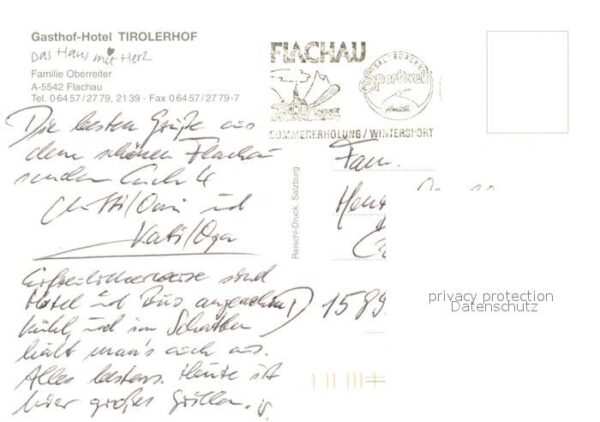 Gasthof-Hotel TIROLERHOF
Das Haus mit Herz
Familie Oberreiter
A-5542 Flachau
Tel. 06457/2779, 2139 · Fax 06457/2779-7
FLACHAU
Sportwelt
SOMMERERHOLUNG / WINTERSPORT
Die besten Grüße aus
dem schönen Flachau
senden Euch 4
und
Erfreulicherweise sind
Hotel und Büro angenehm
kühl, und im Schatten
hält man's auch aus.
Alles bestens. Heute ist
hier großes Grillen.
Reischl-Druck, Salzburg
Fam.
D 1589
privacy protection
Datenschutz